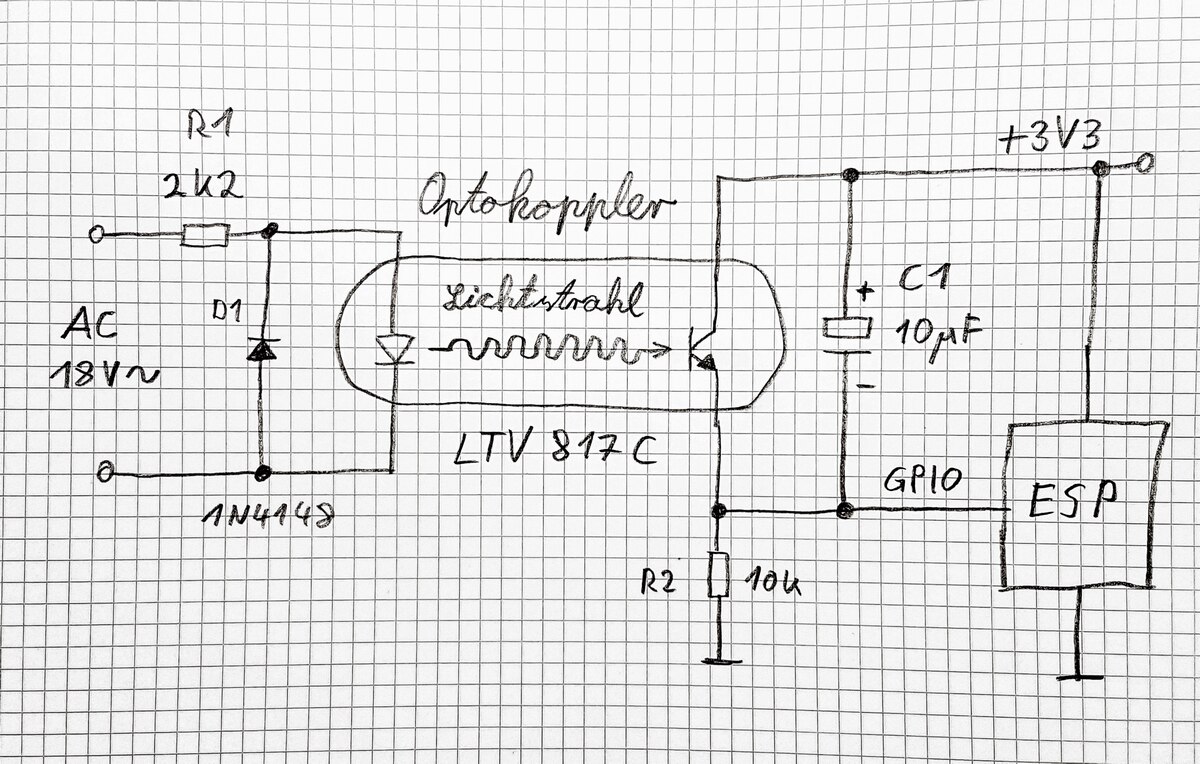 R1
2K2
Optokoppler
+3V3
Lichtstrahl
D1
AC
18V~
+ C1
10µF
-
LTV 817C
1N4148
GPIO
ESP
R2 10k